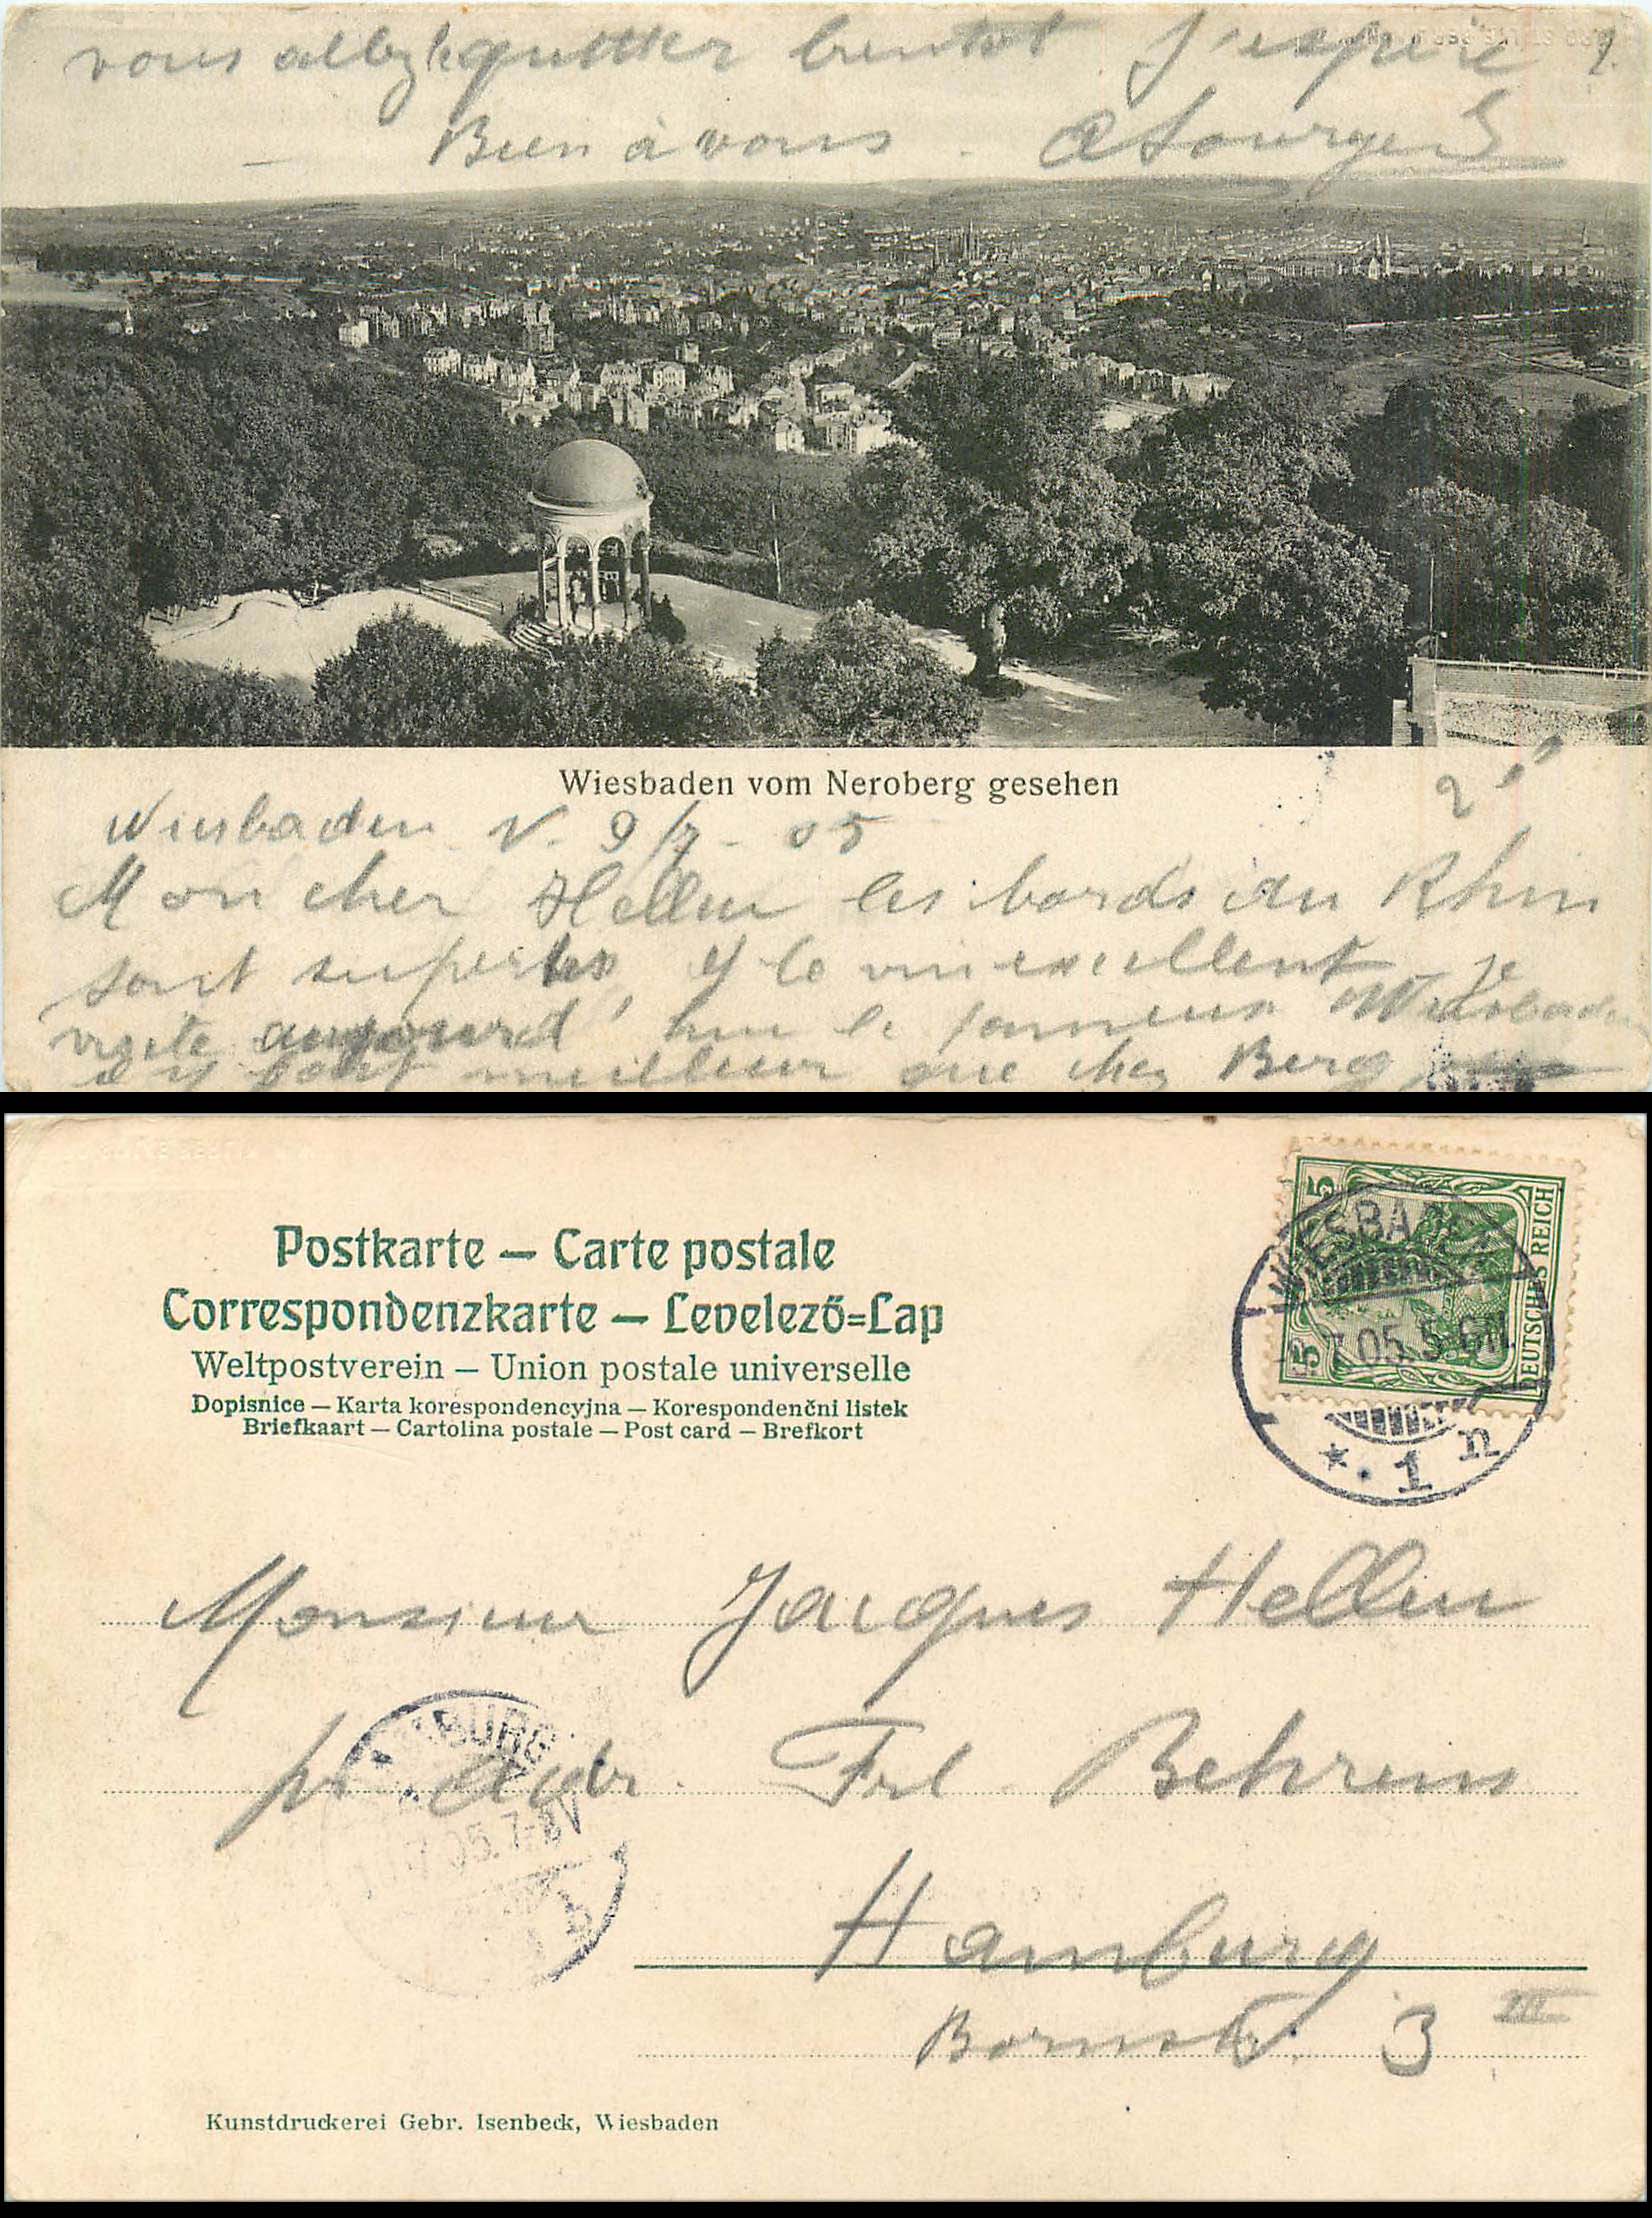 vous allez le quitter bientot j'espère !
Bien à vous.
Wiesbaden vom Neroberg gesehen
Wiesbaden V. 9/7 - 05
2"
Mon cher Heller les bords du Rhin
sont superbes et le vin excellent je
visite aujourd'hui le fameux Wiesbaden
meilleur que chez Berg
Postkarte — Carte postale
Correspondenzkarte — Levelező=Lap
Weltpostverein — Union postale universelle
Dopisnice — Karta korespondencyjna — Korespondenční listek
Briefkaart — Cartolina postale — Post card — Brefkort
5
5
DEUTSCHES REICH
WIESBADEN
7.05. 5-6N.
* 1 n
Monsieur Jacques Heller
pr adr. Frl. Behrens
HAMBURG
7.05. 7-8V
1 b
Hamburg
Bornstr. 3 III
Kunstdruckerei Gebr. Isenbeck, Wiesbaden